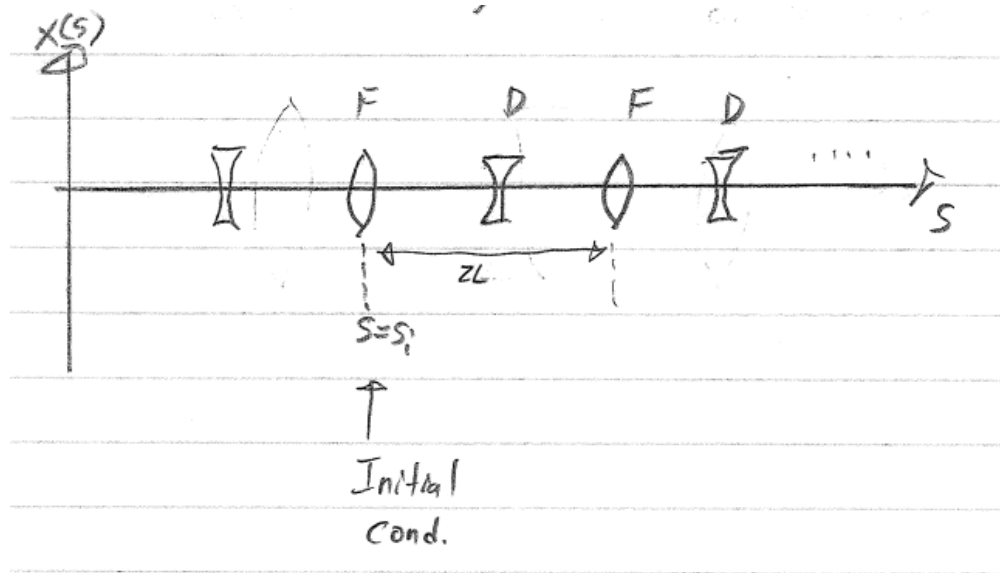 X(s)
F D F D
....
S
2L
S=Si
Initial
Cond.